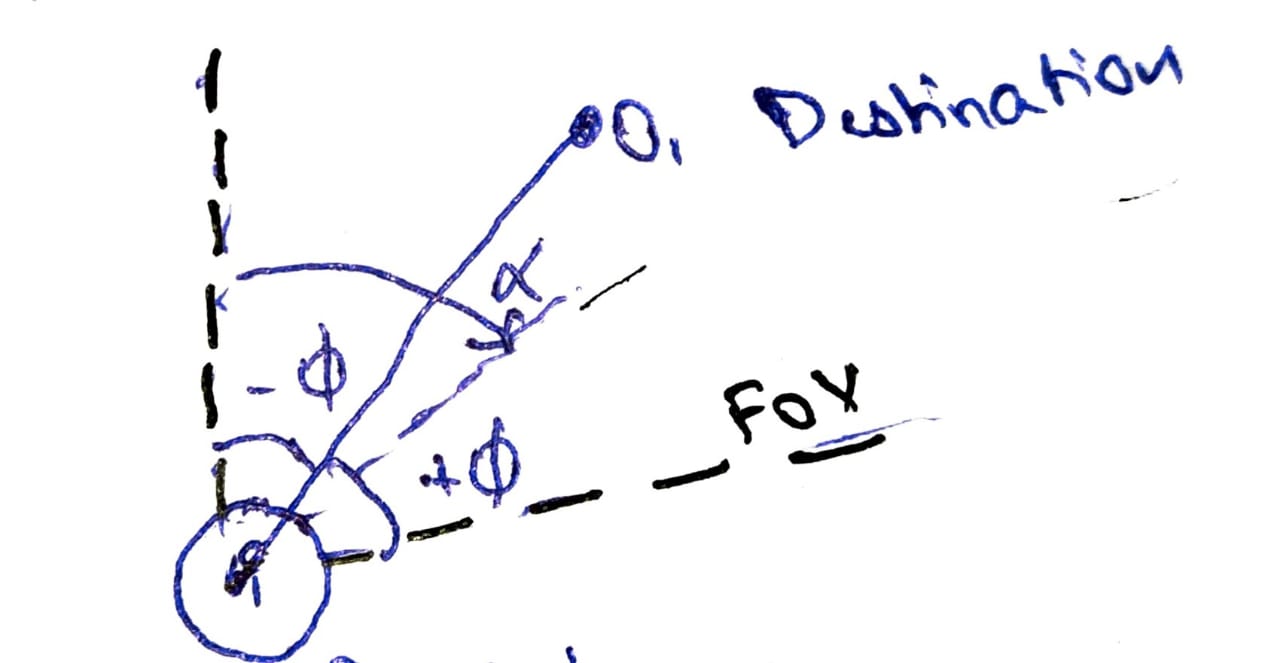 O₁ Destination
α
- ϕ
FOV
+ϕ